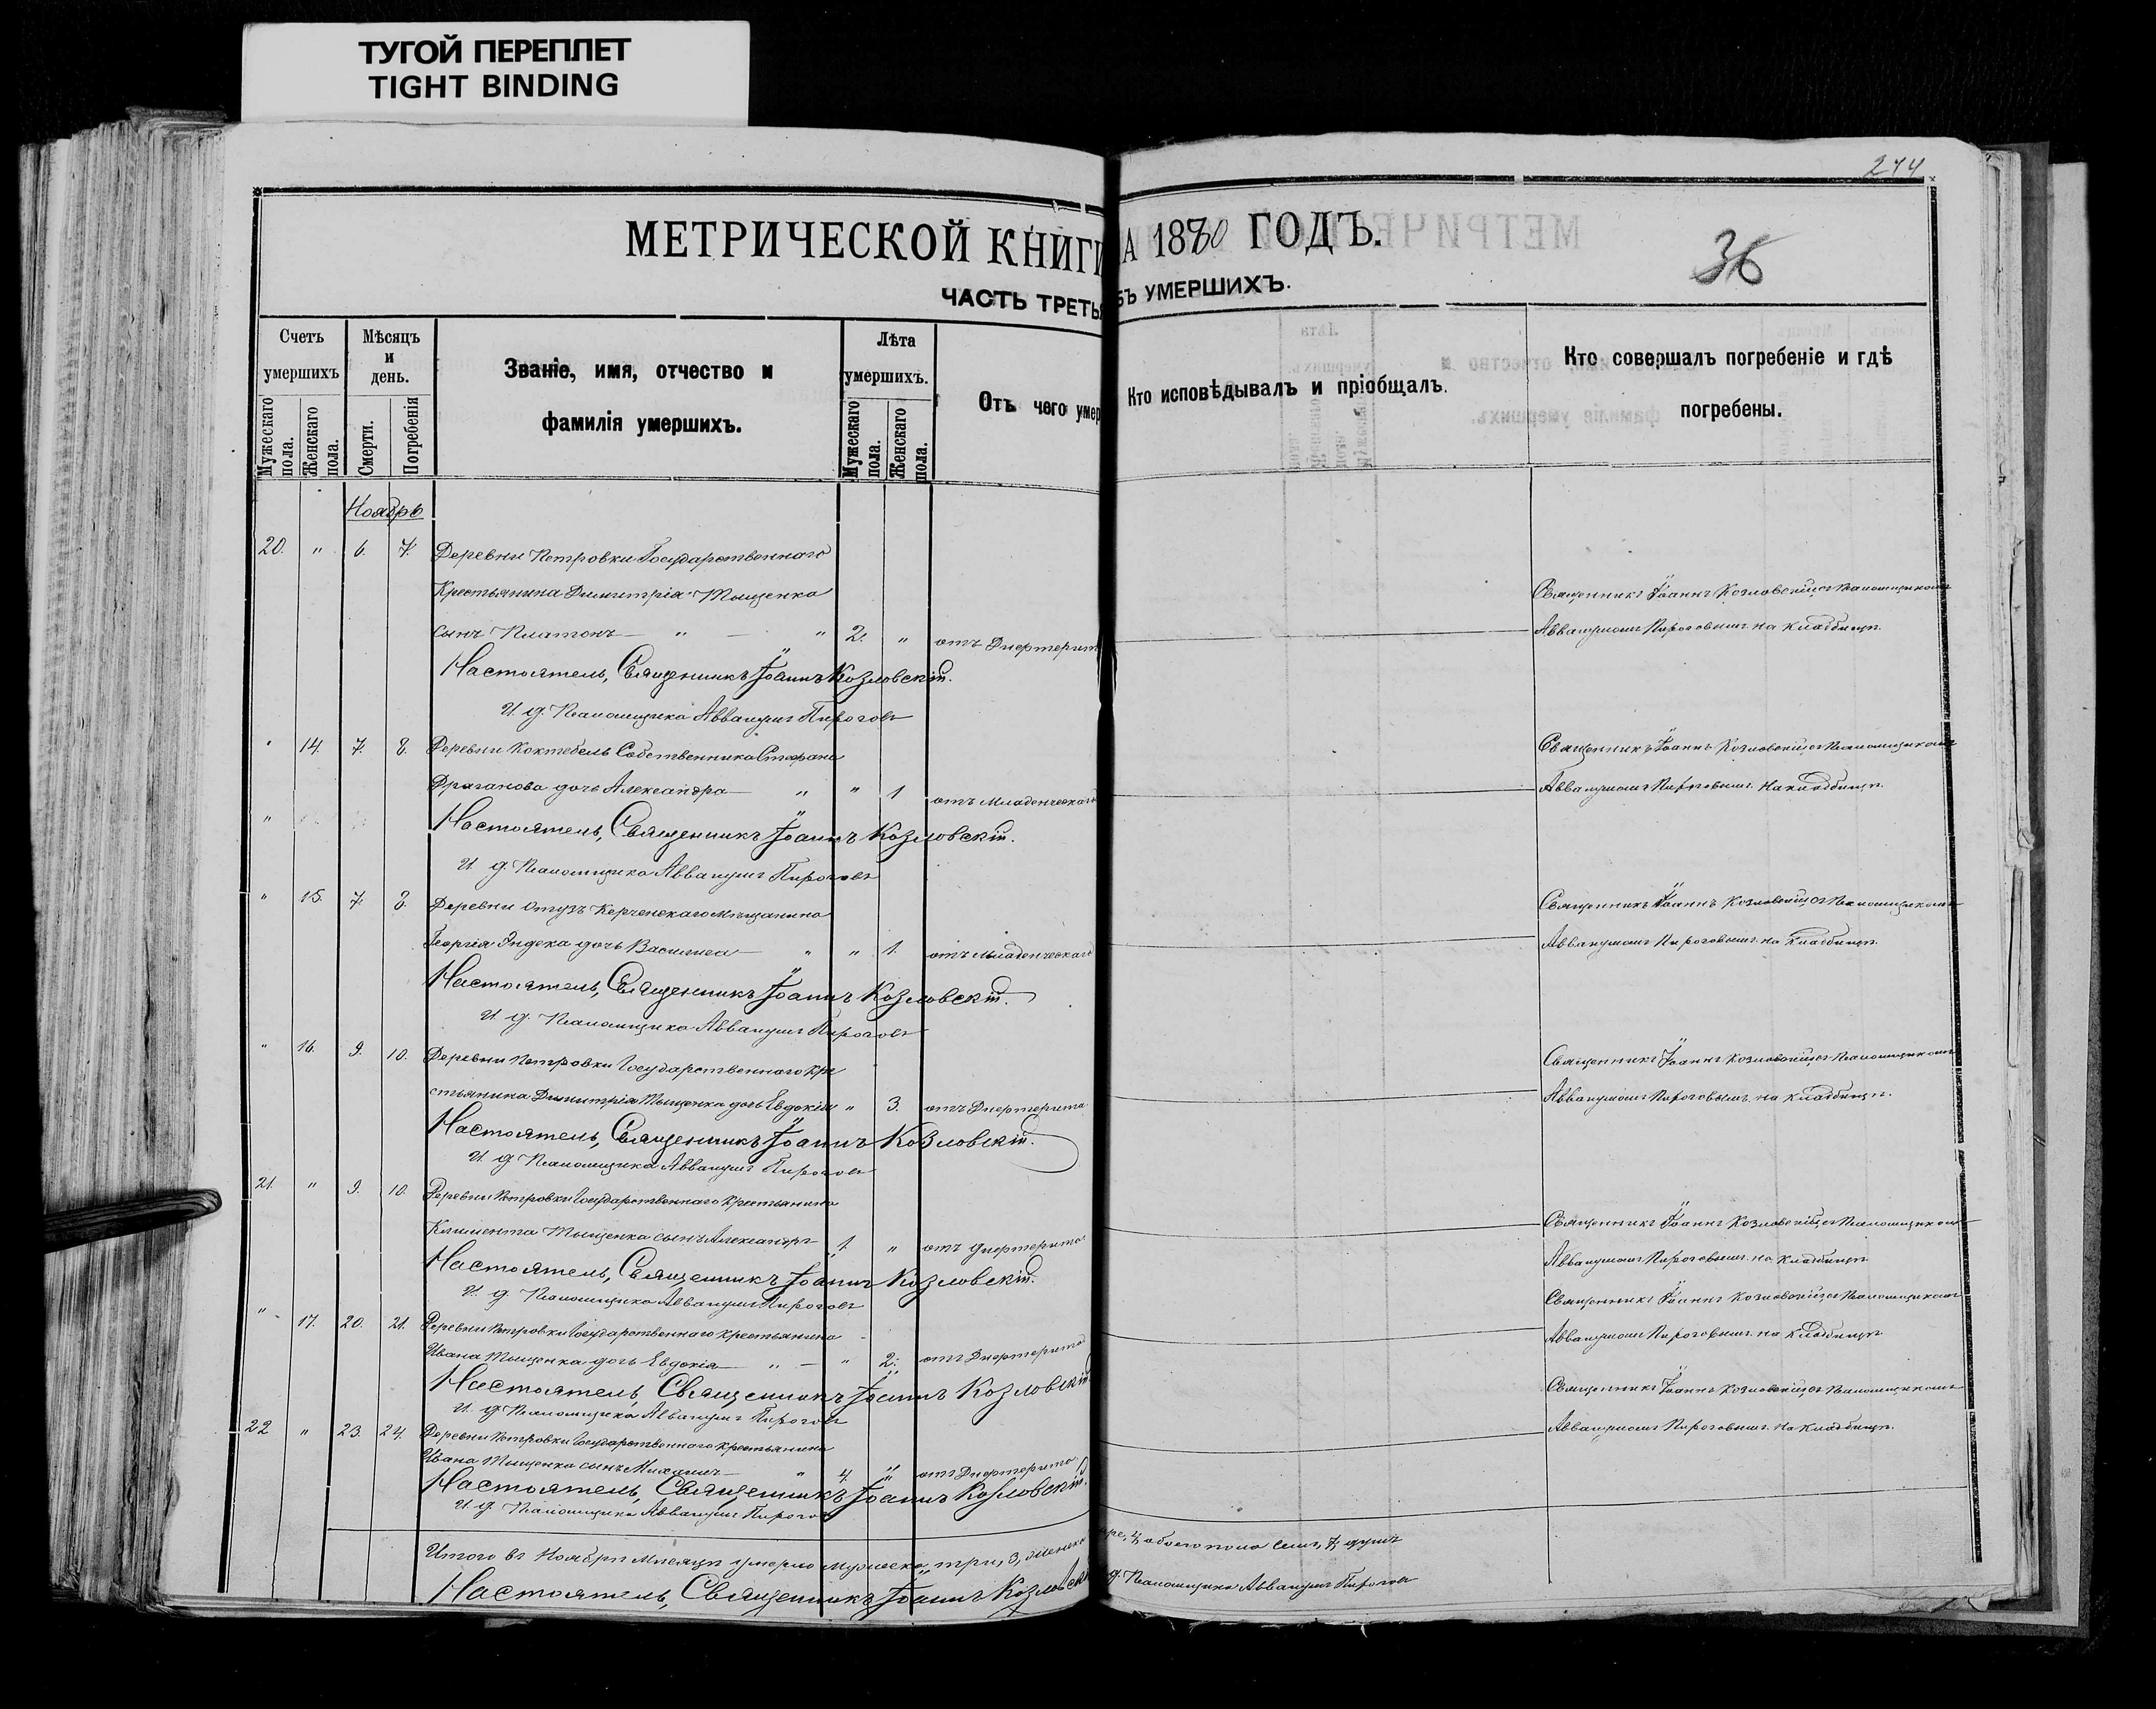 ТУГОЙ ПЕРЕПЛЕТ
TIGHT BINDING
274
МЕТРИЧЕСКОЙ КНИГИ
А 1880 ГОДЪ.
36
ЧАСТЬ ТРЕТЬ
БЪ УМЕРШИХЪ.
Счетъ умершихъ
Мужескаго пола.
Женскаго пола.
Мѣсяцъ и день.
Смерти.
Погребенія
Званіе, имя, отчество и фамилія умершихъ.
Лѣта умершихъ.
Мужескаго пола.
Женскаго пола.
Отъ чего умер
Кто исповѣдывалъ и пріобщалъ.
Кто совершалъ погребеніе и гдѣ погребены.
Ноябрь
20. " 6. 7. Деревни Петровки Государственнаго
Крестьянина Димитрія Тыщенко
сынъ Платонъ — " — " 2. " отъ Дифтерит
Священникъ Іоаннъ Козловскій съ Псаломщикомъ
Аввакумомъ Пироговымъ на кладбищѣ.
Настоятель, Священникъ Іоаннъ Козловскій.
И. д. Псаломщика Аввакумъ Пироговъ
" 14. 7. 8. Деревни Коктебель Собственника Стефана
Драганова дочь Александра — " " 1 отъ Младенческаго
Священникъ Іоаннъ Козловскій съ Псаломщикомъ
Аввакумомъ Пироговымъ на кладбищѣ.
"
Настоятель, Священникъ Іоаннъ Козловскій.
И. д. Псаломщика Аввакумъ Пироговъ
" 15. 7. 8. Деревни Отузъ Керченскаго Мѣщанина
Георгія Индека дочь Василиса — " " 1. отъ Младенческаго
Священникъ Іоаннъ Козловскій съ Псаломщикомъ
Аввакумомъ Пироговымъ на кладбищѣ.
Настоятель, Священникъ Іоаннъ Козловскій.
И. д. Псаломщика Аввакумъ Пироговъ
" 16. 9. 10. Деревни Петровки Государственнаго Кре
стьянина Димитрія Тыщенко дочь Евдокія " 3. отъ Дифтерита
Священникъ Іоаннъ Козловскій съ Псаломщикомъ
Аввакумомъ Пироговымъ на кладбищѣ.
Настоятель, Священникъ Іоаннъ Козловскій.
И. д. Псаломщика Аввакумъ Пироговъ
21. " 9. 10. Деревни Петровки Государственнаго Крестьянина
Климента Тыщенко сынъ Александръ 1. " отъ дифтерита
Священникъ Іоаннъ Козловскій съ Псаломщикомъ
Аввакумомъ Пироговымъ на кладбищѣ
Настоятель, Священникъ Іоаннъ Козловскій.
И. д. Псаломщика Аввакумъ Пироговъ
" 17. 20. 21. Деревни Петровки Государственнаго Крестьянина
Ивана Тыщенко дочь Евдокія — " — " 2. отъ Дифтерита
Священникъ Іоаннъ Козловскій съ Псаломщикомъ
Аввакумомъ Пироговымъ на кладбищѣ
Настоятель, Священникъ Іоаннъ Козловскій
И. д. Псаломщика Аввакумъ Пироговъ
22 " 23. 24. Деревни Петровки Государственнаго Крестьянина
Ивана Тыщенко сынъ Михаилъ — " 4. " отъ Дифтерита
Священникъ Іоаннъ Козловскій съ Псаломщикомъ
Аввакумомъ Пироговымъ на кладбищѣ.
Настоятель, Священникъ Іоаннъ Козловскій.
И. д. Псаломщика Аввакумъ Пирогов
Итого въ Ноябрѣ Мѣсяцѣ умерло Мужеска, три, 3, женска ыре, 4, обоего пола семь, 7, душъ
Настоятель, Священникъ Іоаннъ Козловскі д. Псаломщика Аввакумъ Пироговъ